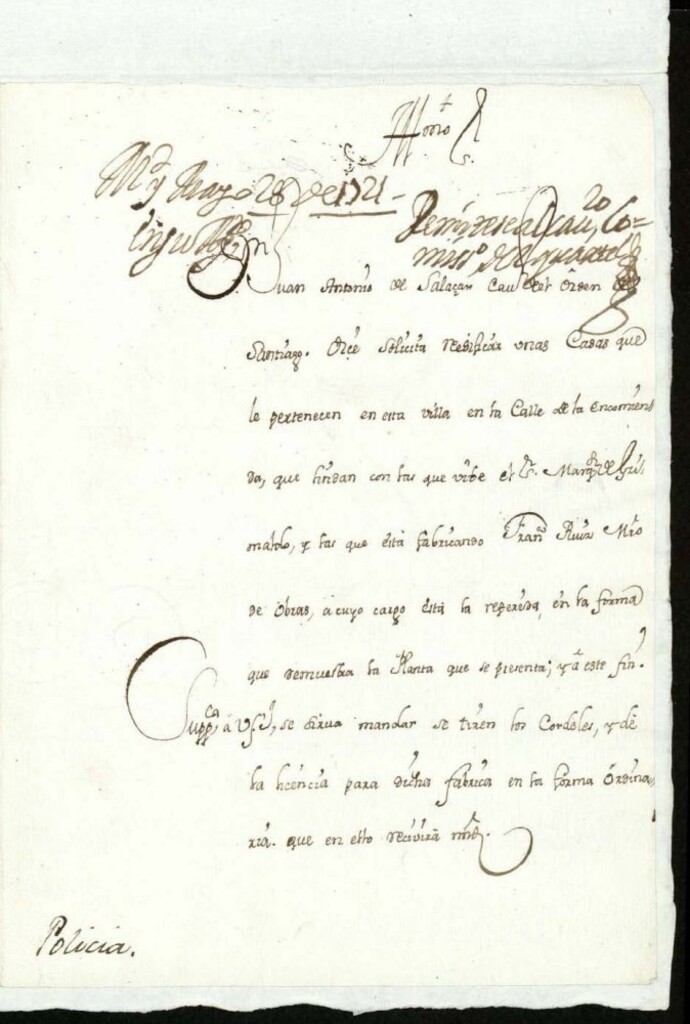 Md y Mayo 28 de 1721
Juan Antonio de Salaçar Cauº del orden de
Santiago. Dice solicita reedificar unas Casas que
le pertenecen en esta villa en la Calle de la Encomien
da, que lindan con las que vibe el Sr. Marqs de Gri
maldo, y las que está fabricando Franco Ruiz Mro
de Obras, a cuyo cargo está la referida, en la forma
que demuestra la Planta que se presenta; y a este fin.
Suppca, á VSI, se sirva mandar se tiren los Cordeles, y dé
la licencia para dicha fabrica en la forma Ordina
ria. que en ello recivirá mrd.
Policia.